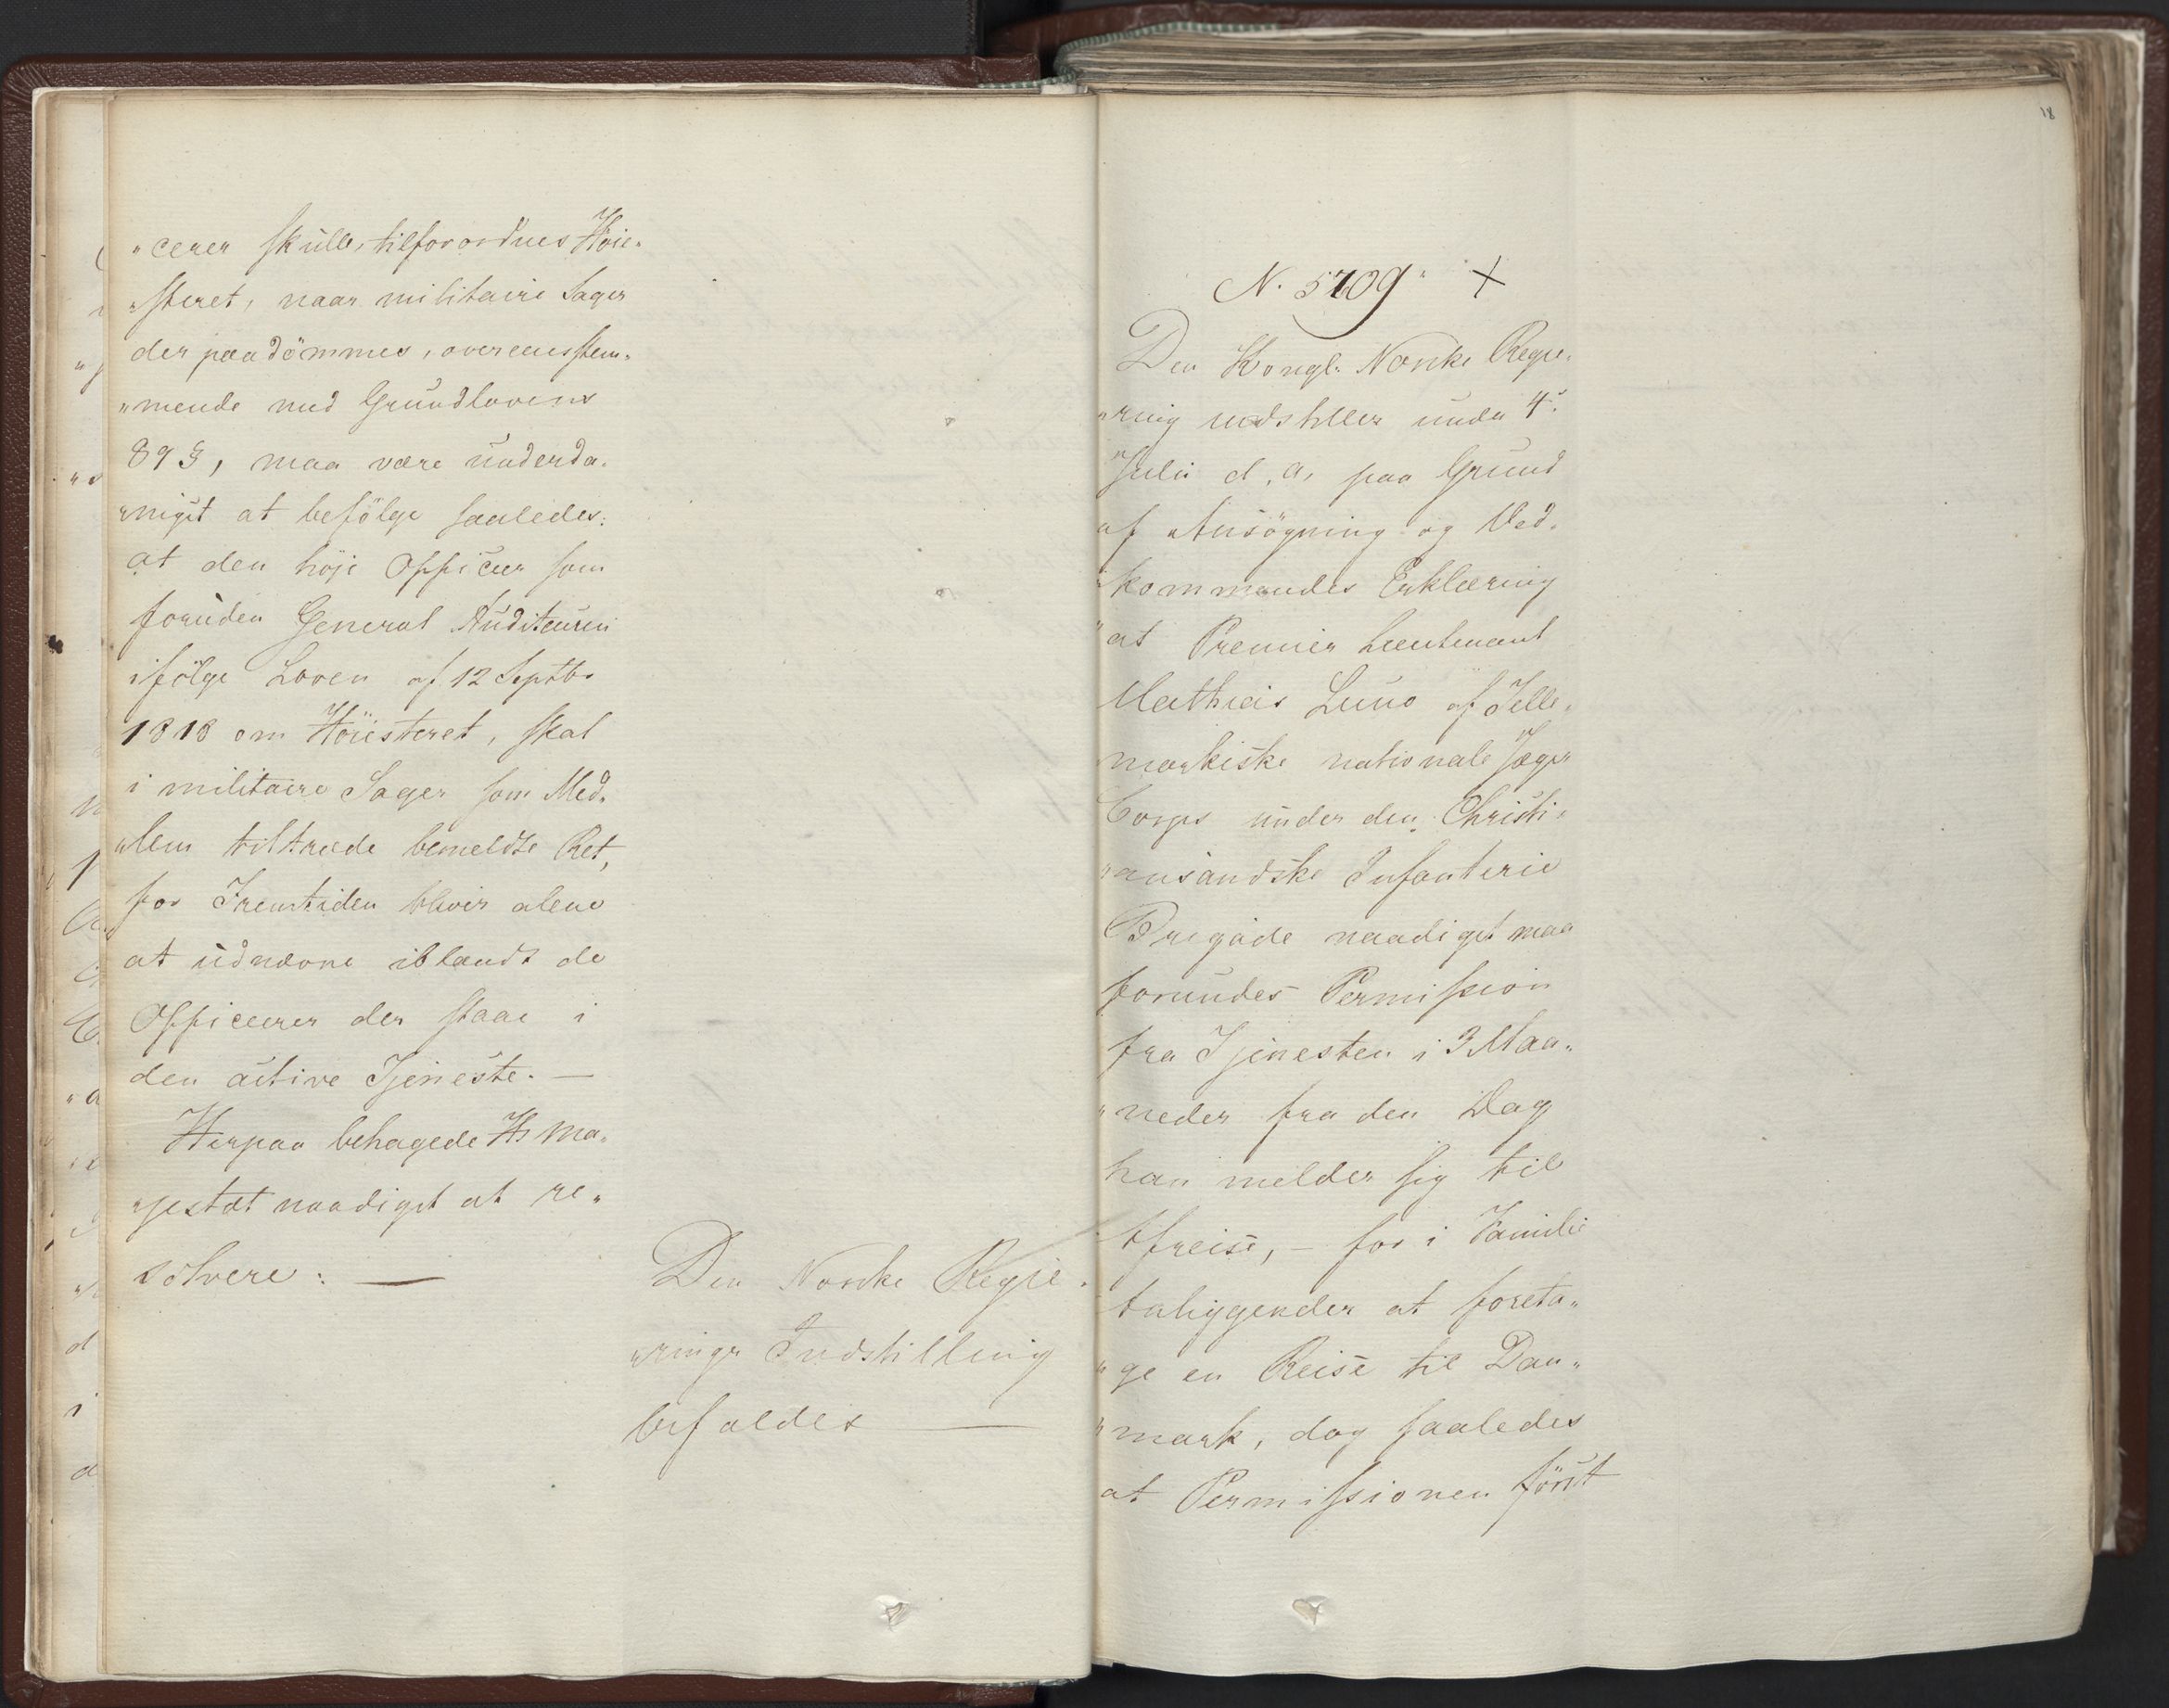 „cerer skulle tilforordnes Höie„
„steret, naar militaire Sager
der paadömmes, overeensstem„
„mende med Grundlovens
89 §, maa være underda„
„nigst at befölge saaledes:
at den höje Officeer som
foruden General Auditeuren
ifölge Loven af 12 Septbr
1818 om Höiesteret, skal
i militaire Sager som Med„
„lem tiltræde bemeldte Ret,
for Fremtiden bliver alene
at udnævne iblandt de
Officeerer der staae i
den active Tjeneste. —
Herpaa behagede Hs Ma„
„jestæt naadigst at re„
solvere: —
Den Norske Regje„
„rings Indstilling
bifaldes —
18
N. 5709. X
Den Kongl. Norske Regje„
„ring indstiller under 4de
Julii d. a. paa Grund
af Ansögning og Ved„
„kommendes Erklæring
at Premier Lieutenant
Mathias Luno af Telle„
markiske nationale Jæger
Corps under den Christi„
„ansandske Infanterie
Brigade naadigst maa
forundes Permission
fra Tjenesten i 3 Maa„
„neder fra den Dag
han melder sig til
Afreise, – for i Familie
Anliggender at foreta„
„ge en Reise til Dan„
„mark, dog saaledes
at Permissionen först